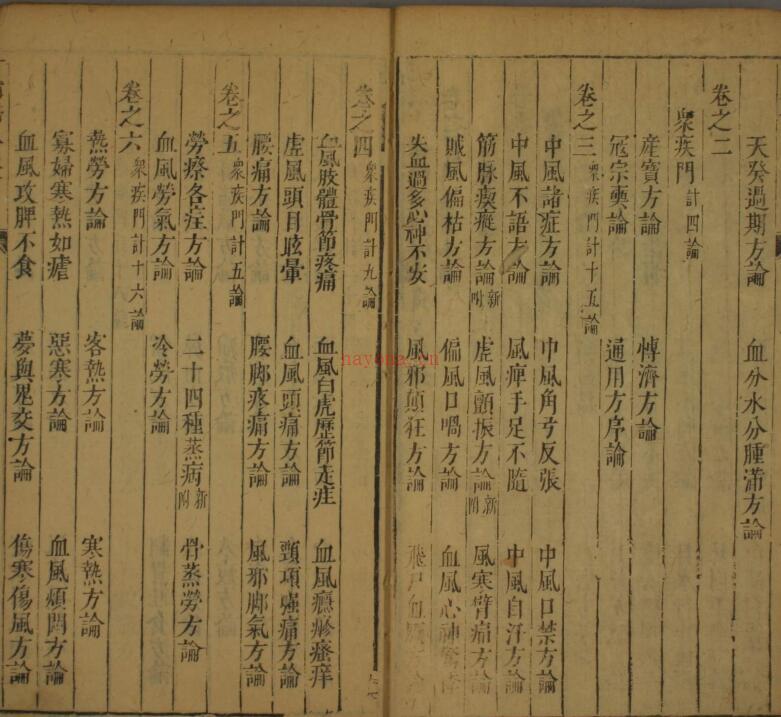 天癸過期方論 血分水分腫滿方論
卷之二
衆疾門計四論
產寳方論 博濟方論
冦宗奭論 通用方序論
卷之三衆疾門計十五論
中風諸症方論 中風角弓反張 中風口禁方論
中風不語方論 風痺手足不隨 中風自汗方論
筋脉瘈瘲方論新附 虚風顫振方論新附 風寒臂痛方論
賊風偏枯方論 偏風口喎方論 血風心神驚悸
失血過多心神不安 風邪顛狂方論 飛尸血
卷之四衆疾門計九論
血風肢體骨節疼痛 血風白虎歷節走疰 血風癮疹瘙痒
虚風頭目眩暈 血風頭痛方論 頸項强痛方論
腰痛方論 腰脚疼痛方論 風邪脚氣方論
卷之五衆疾門計五論
勞瘵各疰方論 二十四種蒸病新附 骨蒸勞方論
血風勞氣方論 冷勞方論
卷之六衆疾門計十六論
熱勞方論 客熱方論 寒熱方論
寡婦寒熱如瘧 惡寒方論 血風煩悶方論
血風攻脾不食 夢與鬼交方論 傷寒傷風方論
nayona.cn